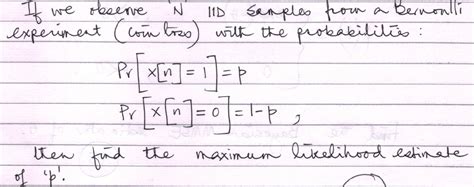 If we observe 'N' IID samples from a Bernoulli
experiment (coin toss) with the probabilities :
Pr[x[n] = 1] = p
Pr[x[n] = 0] = 1-p ,
then find the maximum likelihood estimate
of 'p'.